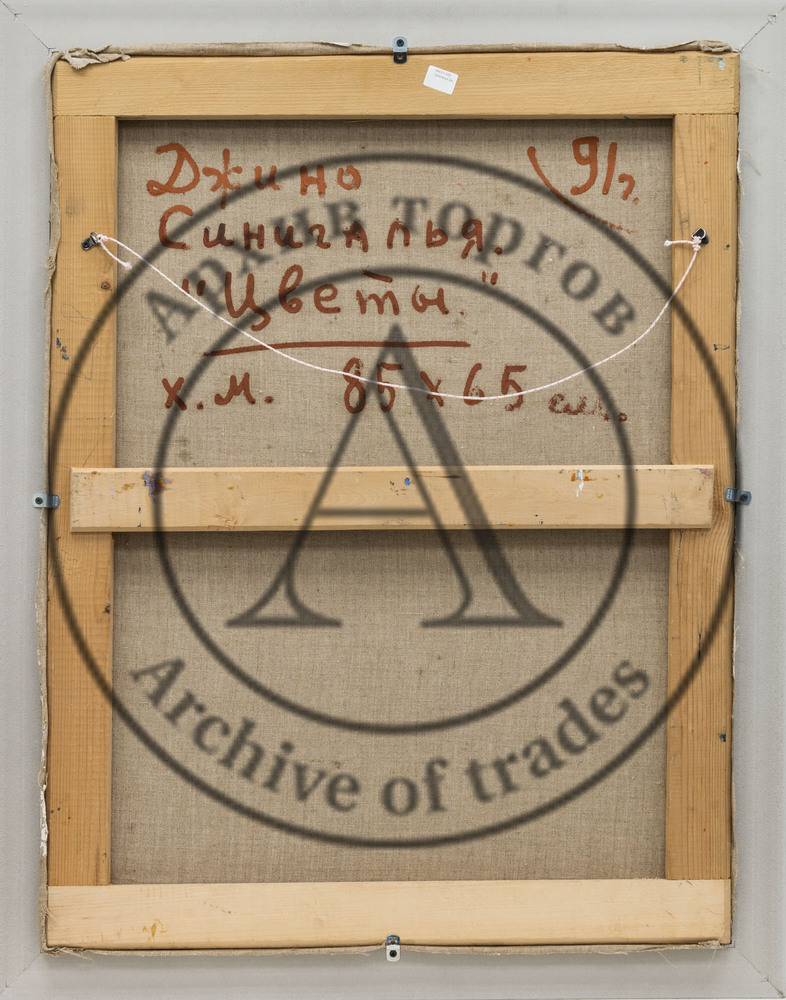 Джино 91г.
Синигалья.
"Цветы."
х.м. 85х65 см.
Архив торгов
A
Archive of trades